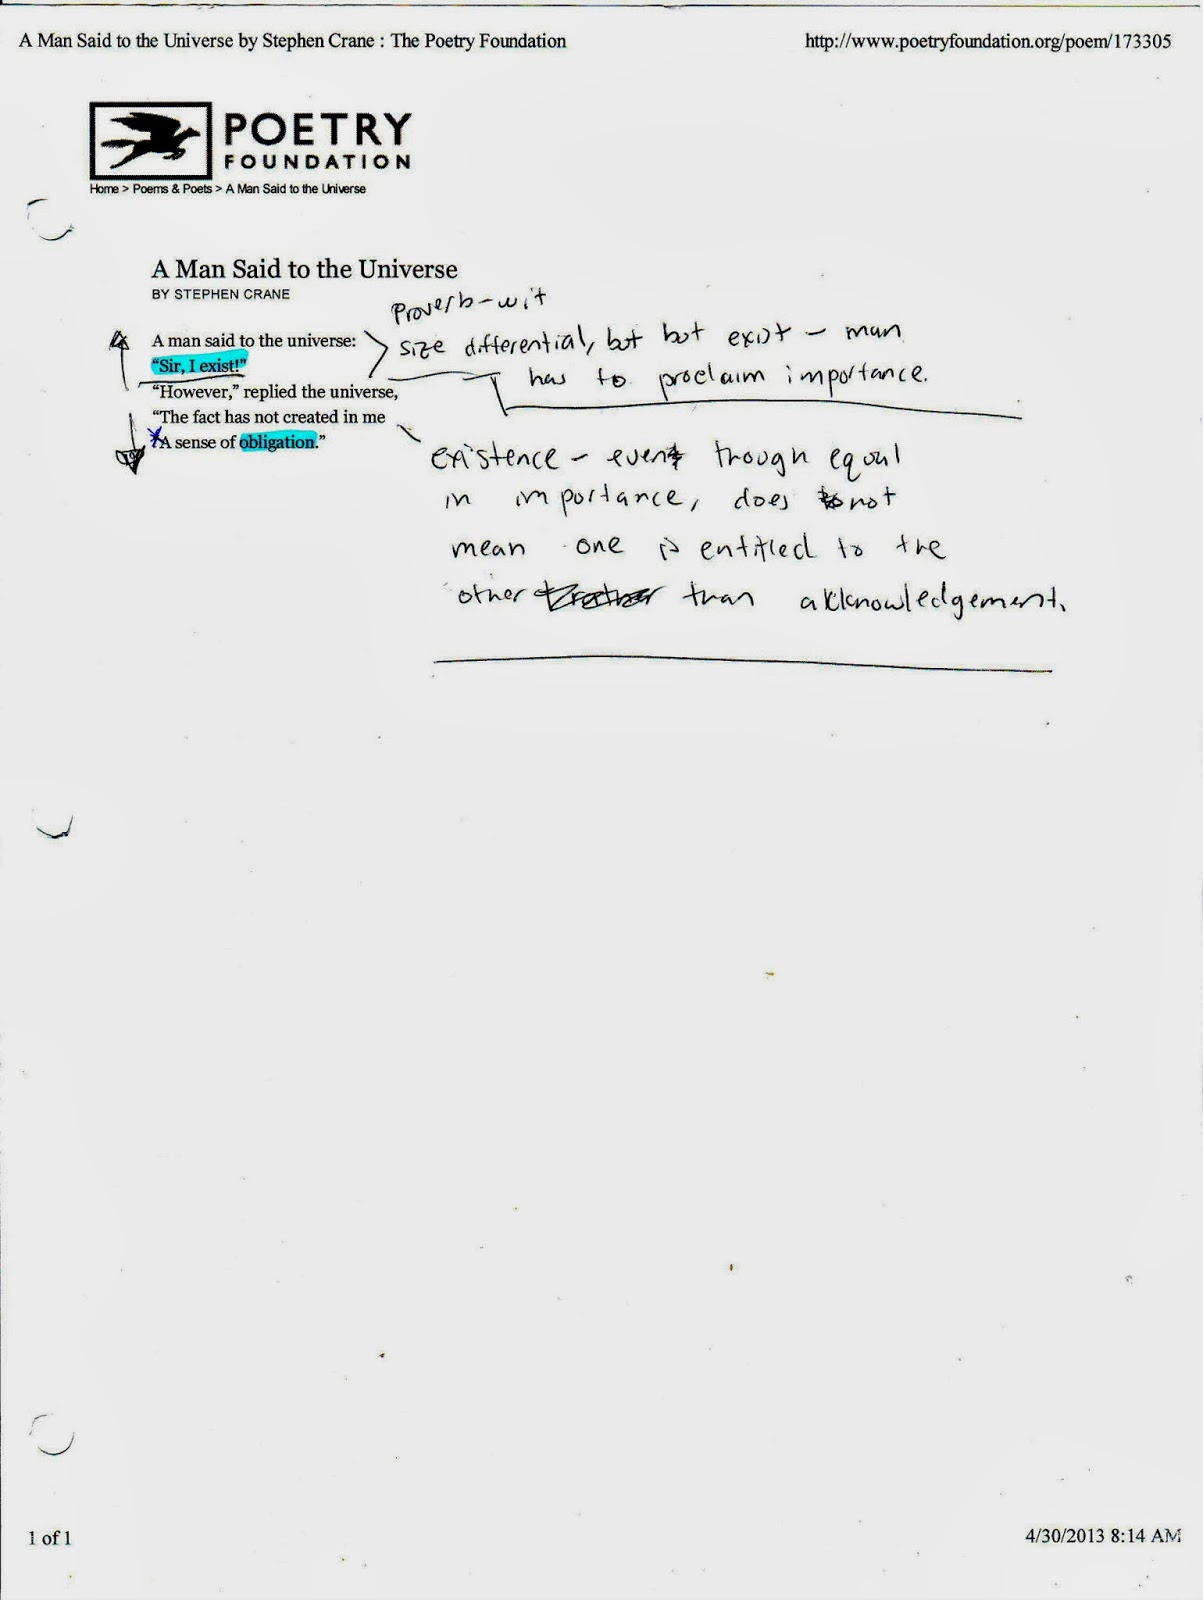 A Man Said to the Universe by Stephen Crane : The Poetry Foundation http://www.poetryfoundation.org/poem/173305
POETRY
FOUNDATION
Home > Poems & Poets > A Man Said to the Universe
A Man Said to the Universe
BY STEPHEN CRANE
A man said to the universe:
“Sir, I exist!”
“However,” replied the universe,
“The fact has not created in me
A sense of obligation.”
Proverb-wit
size differential, but bot exist - man
has to proclaim importance.
existence - even though equal
in importance, does not
mean one is entitled to the
other than akknowledgement.
1 of 1 4/30/2013 8:14 AM